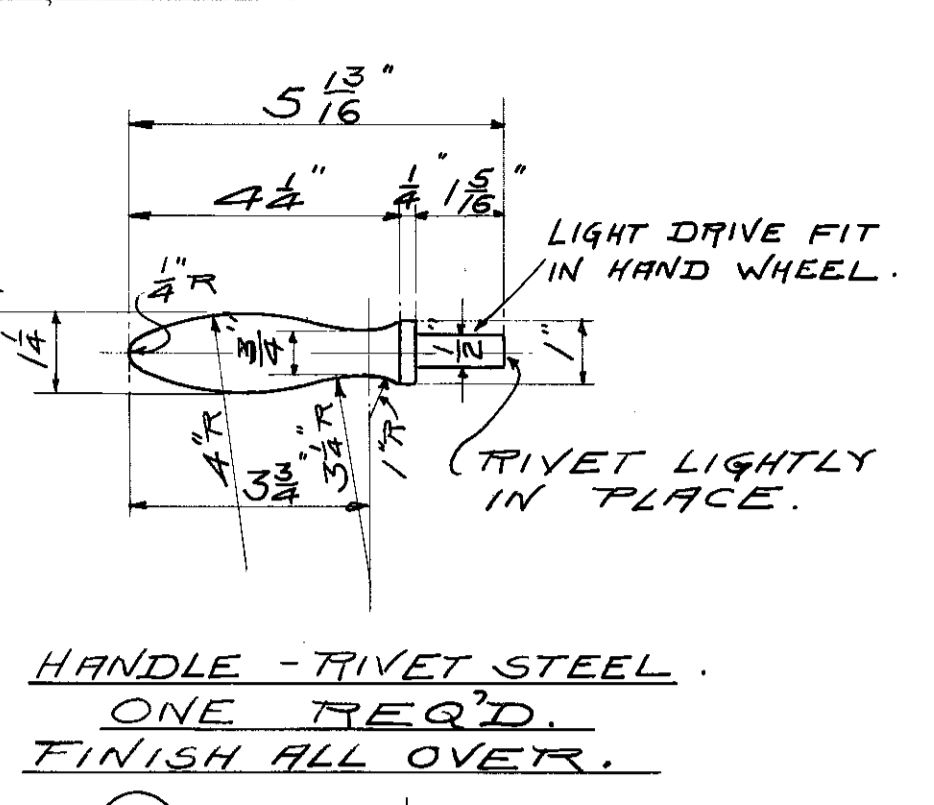 5 13/16"
4 1/4" 1/4" 1 5/16"
LIGHT DRIVE FIT
IN HAND WHEEL.
1/4" R
1 1/4
3/4"
1/2"
1"
4" R
3 1/4" R
1" R
3 3/4"
RIVET LIGHTLY
IN PLACE.
HANDLE - RIVET STEEL.
ONE REQ'D.
FINISH ALL OVER.